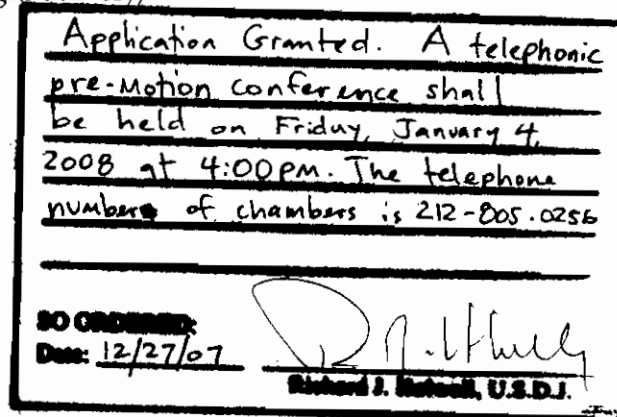 Application Granted. A telephonic
pre-Motion conference shall
be held on Friday, January 4,
2008 at 4:00PM. The telephone
number of chambers is 212-805-0256
SO ORDERED:
Date: 12/27/07
Richard J. Holwell, U.S.D.J.